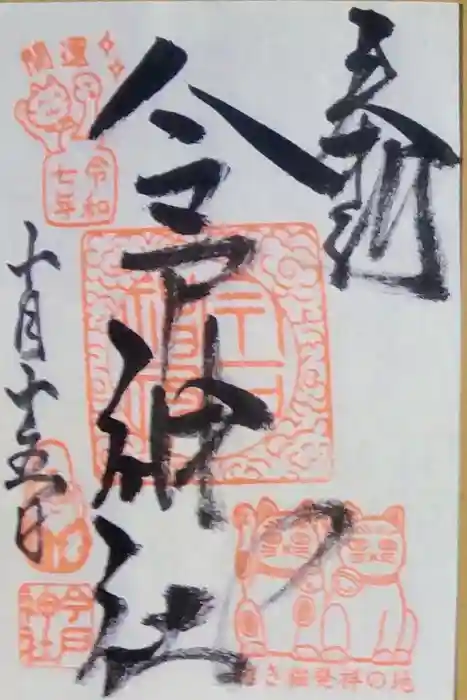 奉納
今戸神社
開運
令和
七年
十月十五日
今戸
神社
招き猫発祥の地